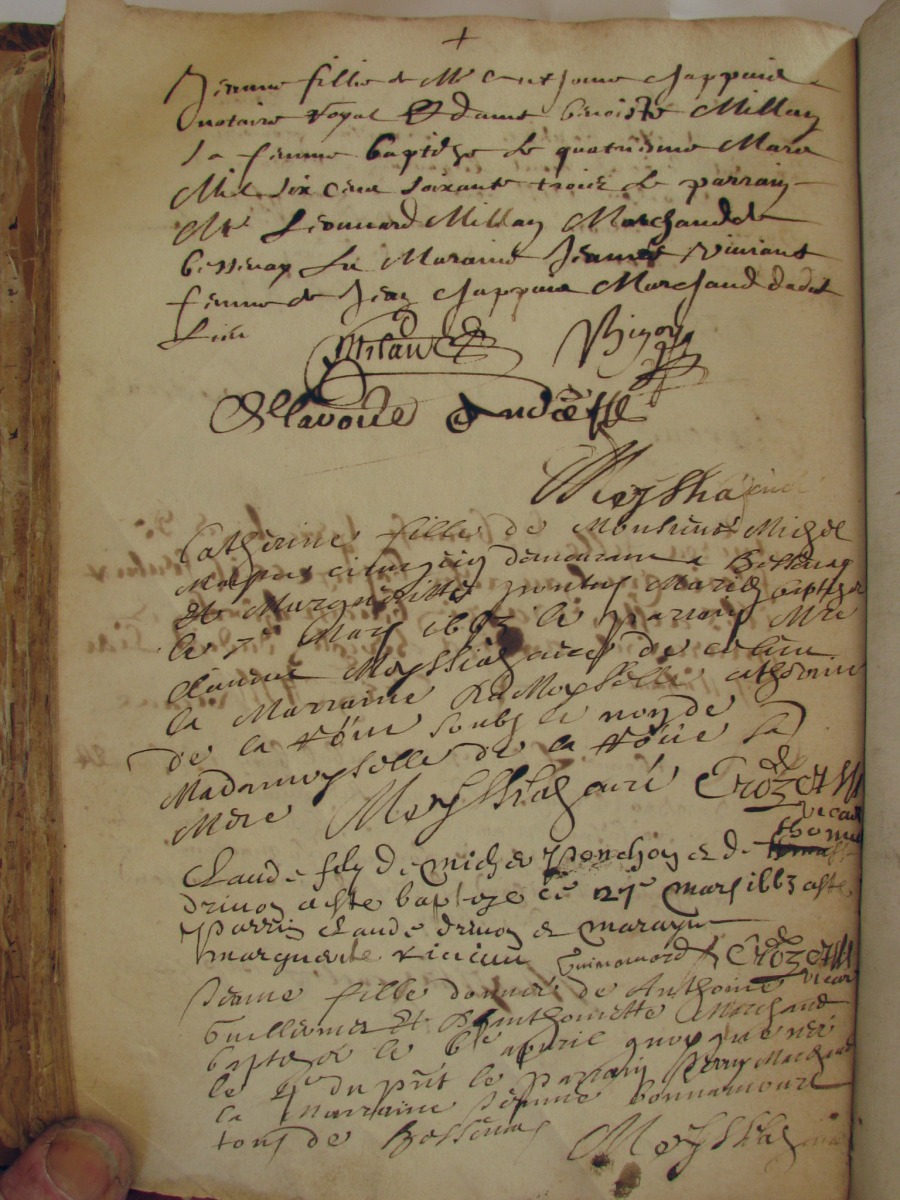 Jeanne fille de Mr Anthoine Chappuis
notaire royal Et dame benoiste Millan
sa femme baptisée le quatriesme Mars
Mil six cens soixante trois le parrain
Mr Léonnard Millan Marchand de
bessenay La Maraine Jeanne Viviant
femme de Jean Chappuis Marchand dudit
Lieu
Milan Bigon
Clavoile
Meysshia
Catherine fille de Monsieur Michel
citoyen demeurant a Bessenay
Et Margueritte Mariés baptisée
le 7e Mars 1663 le parrain Mre
Claude Meysshia curé de ce lieu
la Marraine DaMoyselle Catherine
de la Roue soubz le nom de
Madamoyselle de la Roüe sa
Mere Meysshia curé Crozet
vicaire
Claude fils de michel Ponchon et de thomas
drivon a esté baptizé ce 27e mars 1663 a esté
Parrin Claude drivon et marayne
marguerite vivian Guimomord Crozet
vicaire
Jeanne fille donnée de Anthoine
Guillermet Et d'Anthoinette Marchand
baptizée le 6e apvril 
le 4e du pnt le parrain Marchand
la marraine Jeanne bonnamour
tous de Bessenay Meysshia